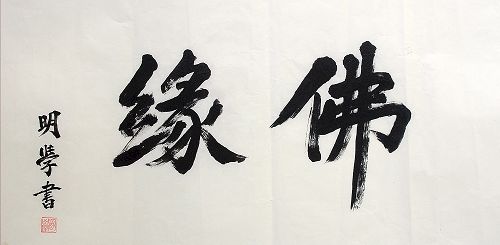 佛緣
明學書